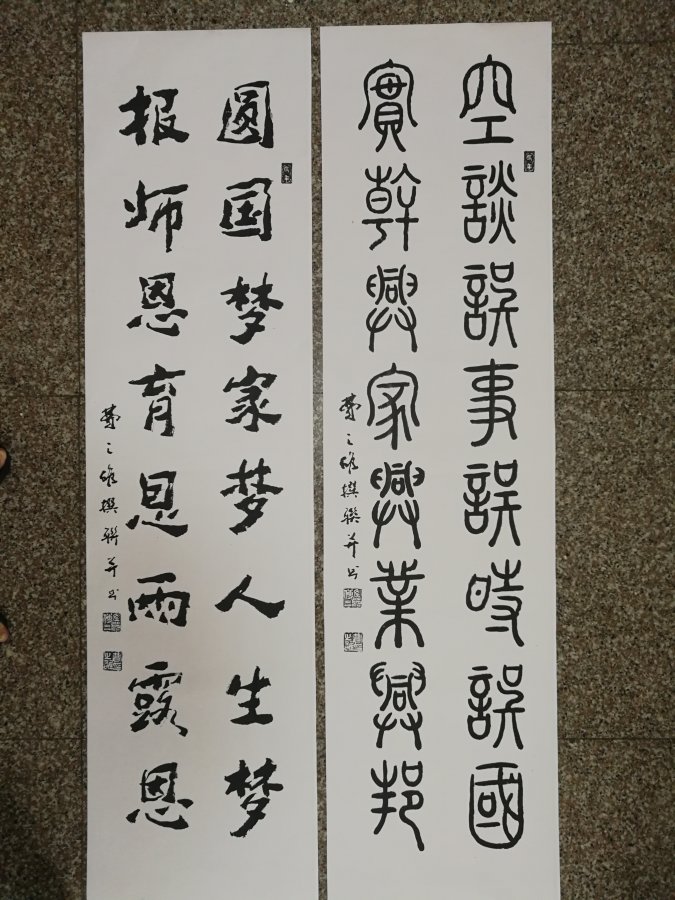 空談誤事誤時誤國
實幹興家興業興邦
費之雄撰聯并书
圆国梦家梦人生梦
报师恩育恩雨露恩
費之雄撰聯并书